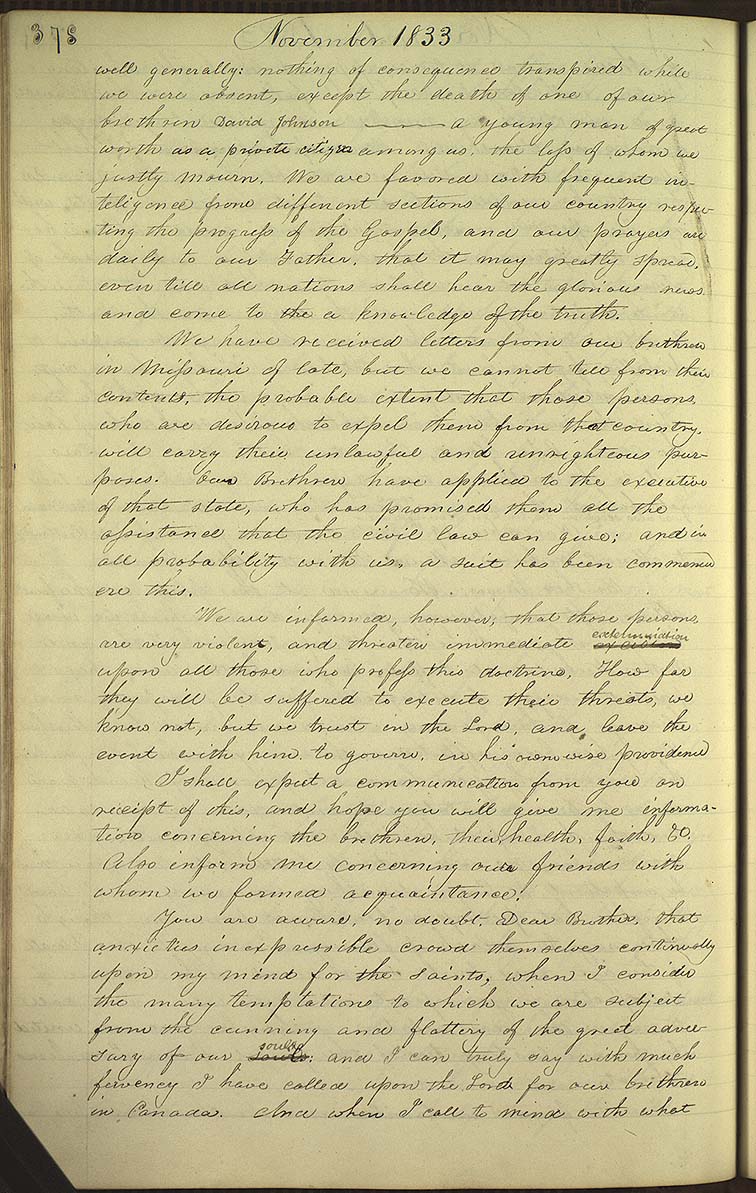 378
November 1833
well generally: nothing of consequence transpired while
we were absent, except the death of one of our
brethrin David Johnson ——— a young man of great
worth as a private citizen among us, the loss of whom we
justly mourn. We are favored with frequent in-
teligence from different sections of our country respec-
ting the progress of the Gospel, and our prayers are
daily to our Father, that it may greatly spread,
even till all nations shall hear the glorious news
and come to the a knowledge of the truth.
We have received letters from our brethren
in Missouri of late, but we cannot tell from their
contents, the probable extent that those persons,
who are desirous to expel them from that country,
will carry their unlawful and unrighteous pur-
poses. Our Brethren have applied to the executive
of that state, who has promised them all the
assistance that the civil law can give; and in
all probability with us, a suit has been commenced
ere this.
We are informed, however, that those persons
are very violent, and threaten immediate extermination
upon all those who profess this doctrine. How far
they will be suffered to execute their threats, we
know not, but we trust in the Lord, and leave the
event with him to govern, in his own wise providence
I shall expect a communication from you on
receipt of this, and hope you will give me informa-
tion concerning the brethren, their health, faith, &c.
Also inform me concerning our friends with
whom we formed acquaintance.
You are aware, no doubt, Dear Brother, that
anxieties inexpressible crowd themselves continually
upon my mind for the saints, when I consider
the many temptations to which we are subject
from the cunning and flattery of the great adver-
sary of our souls: and I can truly say with much
fervency I have called upon the Lord for our brethren
in Canada. And when I call to mind with what